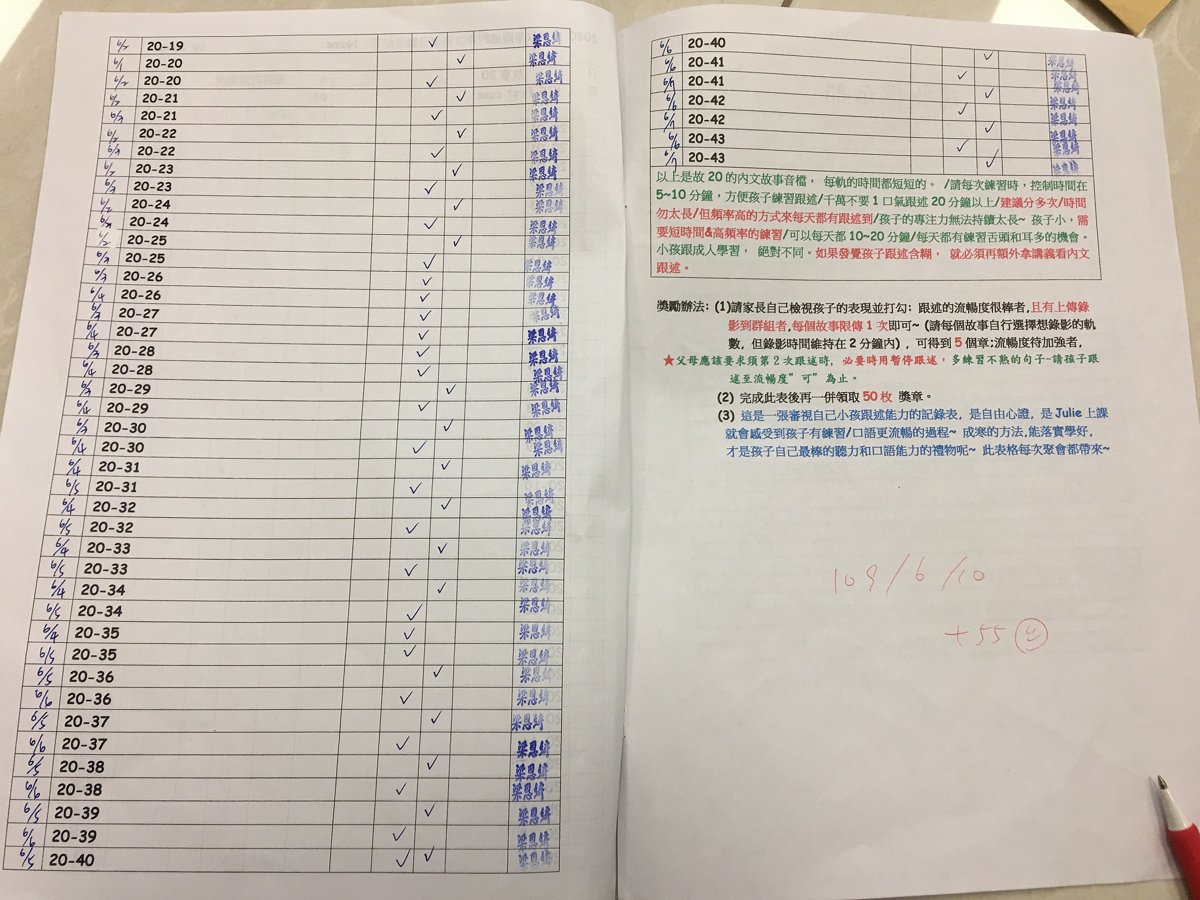 6/2 20-19 ✓ 梁恩綺
6/1 20-20 ✓ 梁恩綺
6/2 20-20 ✓ 梁恩綺
6/2 20-21 ✓ 梁恩綺
6/3 20-21 ✓ 梁恩綺
6/2 20-22 ✓ 梁恩綺
6/3 20-22 ✓ 梁恩綺
6/2 20-23 ✓ 梁恩綺
6/3 20-23 ✓ 梁恩綺
6/2 20-24 ✓ 梁恩綺
20-24 ✓ 梁恩綺
6/2 20-25 ✓ 梁恩綺
6/3 20-25 ✓ 梁恩綺
6/3 20-26 ✓ 梁恩綺
6/4 20-26 ✓ 梁恩綺
6/3 20-27 ✓ 梁恩綺
6/4 20-27 ✓ 梁恩綺
6/3 20-28 ✓ 梁恩綺
6/4 20-28 ✓ 梁恩綺
6/3 20-29 ✓ 梁恩綺
6/4 20-29 ✓ 梁恩綺
6/3 20-30 ✓ 梁恩綺
6/4 20-30 ✓ 梁恩綺
6/4 20-31 ✓ 梁恩綺
6/5 20-31 ✓ 梁恩綺
6/4 20-32 ✓ 梁恩綺
6/5 20-32 ✓ 梁恩綺
6/4 20-33 ✓ 梁恩綺
6/5 20-33 ✓ 梁恩綺
6/4 20-34 ✓ 梁恩綺
6/5 20-34 ✓ 梁恩綺
6/4 20-35 ✓ 梁恩綺
6/5 20-35 ✓ 梁恩綺
6/5 20-36 ✓ 梁恩綺
6/6 20-36 ✓ 梁恩綺
6/5 20-37 ✓ 梁恩綺
6/6 20-37 ✓ 梁恩綺
6/5 20-38 ✓ 梁恩綺
6/6 20-38 ✓ 梁恩綺
6/5 20-39 ✓ 梁恩綺
6/6 20-39 ✓ 梁恩綺
6/5 20-40 ✓ ✓ 梁恩綺
6/6 20-40 ✓ 梁恩綺
6/6 20-41 ✓ 梁恩綺
6/7 20-41 ✓ 梁恩綺
6/6 20-42 ✓ 梁恩綺
6/7 20-42 ✓ 梁恩綺
6/6 20-43 ✓ 梁恩綺
6/7 20-43 ✓ 梁恩綺
以上是故 20 的內文故事音檔， 每軌的時間都短短的。 /請每次練習時，控制時間在
5~10 分鐘，方便孩子練習跟述/千萬不要 1 口氣跟述 20 分鐘以上/建議分多次/時間
勿太長/但頻率高的方式來每天都有跟述到/孩子的專注力無法持續太長~ 孩子小，需
要短時間&高頻率的練習/可以每天都 10~20 分鐘/每天都有練習舌頭和耳多的機會。
小孩跟成人學習， 絕對不同。如果發覺孩子跟述含糊， 就必須再額外拿講義看內文
跟述。
獎勵辦法: (1)請家長自己檢視孩子的表現並打勾: 跟述的流暢度很棒者,且有上傳錄
影到群組者,每個故事限傳 1 次即可~ (請每個故事自行選擇想錄影的軌
數, 但錄影時間維持在 2 分鐘內) , 可得到 5 個章;流暢度待加強者,
★父母應該要求須第 2 次跟述時, 必要時用暫停跟述, 多練習不熟的句子~請孩子跟
述至流暢度” 可” 為止。
(2) 完成此表後再一併領取 50 枚 獎章。
(3) 這是一張審視自己小孩跟述能力的記錄表, 是自由心證, 是 Julie 上課
就會感受到孩子有練習/口語更流暢的過程~ 成寒的方法,能落實學好,
才是孩子自己最棒的聽力和口語能力的禮物呢~ 此表格每次聚會都帶來~
109/6/10
+55